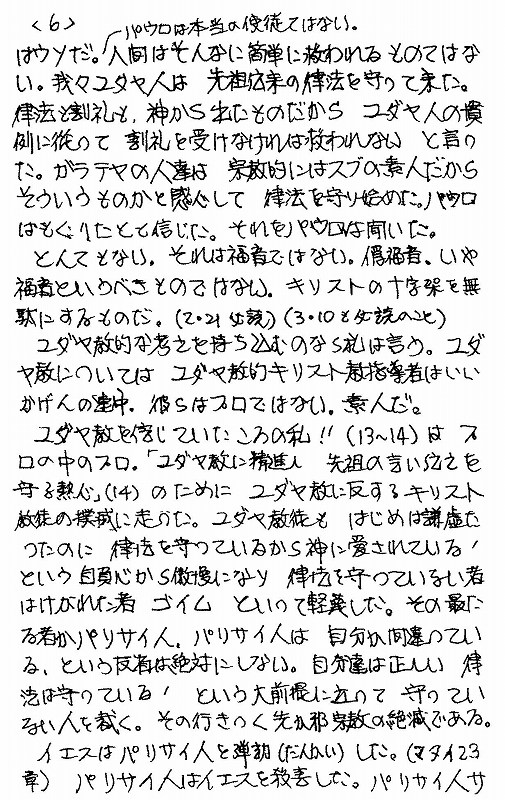 〈6〉
パウロは本当の使徒ではない。
はウソだ。人間はそんなに簡単に救われるものではな
い。我々ユダヤ人は 先祖伝来の律法を守って来た。
律法も割礼も、神から出たものだから ユダヤ人の慣
例に従って 割礼を受けなければ救われない と言っ
た。ガラテヤの人達は 宗教的にはズブの素人だから
そういうものかと感心して 律法を守り始めた。パウロ
はもぐりだと信じた。それをパウロは聞いた。
とんでもない。それは福音ではない。偽福音、いや
福音というべきものではない。キリストの十字架を無
駄にするものだ。(2・21 必読) (3・10も必読のこと)
ユダヤ教的な考えを持ち込むのなら私は言う。ユダ
ヤ教については ユダヤ教的キリスト教指導者はいい
かげんの連中。彼らはプロではない。素人だ。
ユダヤ教を信じていたころの私!! (13~14) は プ
ロの中のプロ。「ユダヤ教に精進し 先祖の言い伝えを
守る熱心」(14) のために ユダヤ教に反するキリスト
教徒の撲滅に走った。ユダヤ教徒も はじめは謙虚だ
ったのに 律法を守っているから神に愛されている!
という自負心から傲慢になり 律法を守っていない者
はけがれた者 ゴイム といって軽蔑した。その最た
る者がパリサイ人。パリサイ人は 自分が間違ってい
る、という反省は絶対にしない。自分達は正しい 律
法は守っている! という大前提に立って 守ってい
ない人を裁く。その行きつく先が邪宗教の絶滅である。
イエスはパリサイ人を弾劾(だんがい)した。(マタイ23
章) パリサイ人はイエスを殺害した。パリサイ人サ